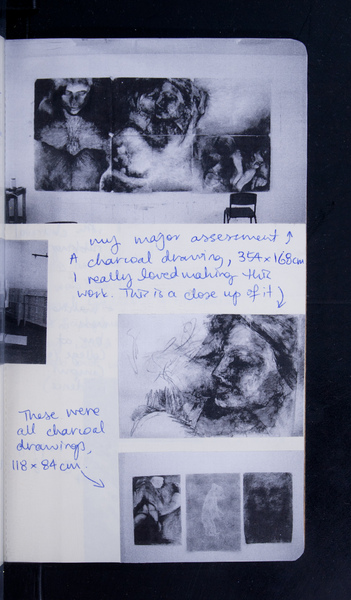 my major assessment ↑
A charcoal drawing, 354 x 168cm
I really loved making this
work. This is a close up of it ↓
These were
all charcoal
drawings,
118 x 84 cm.